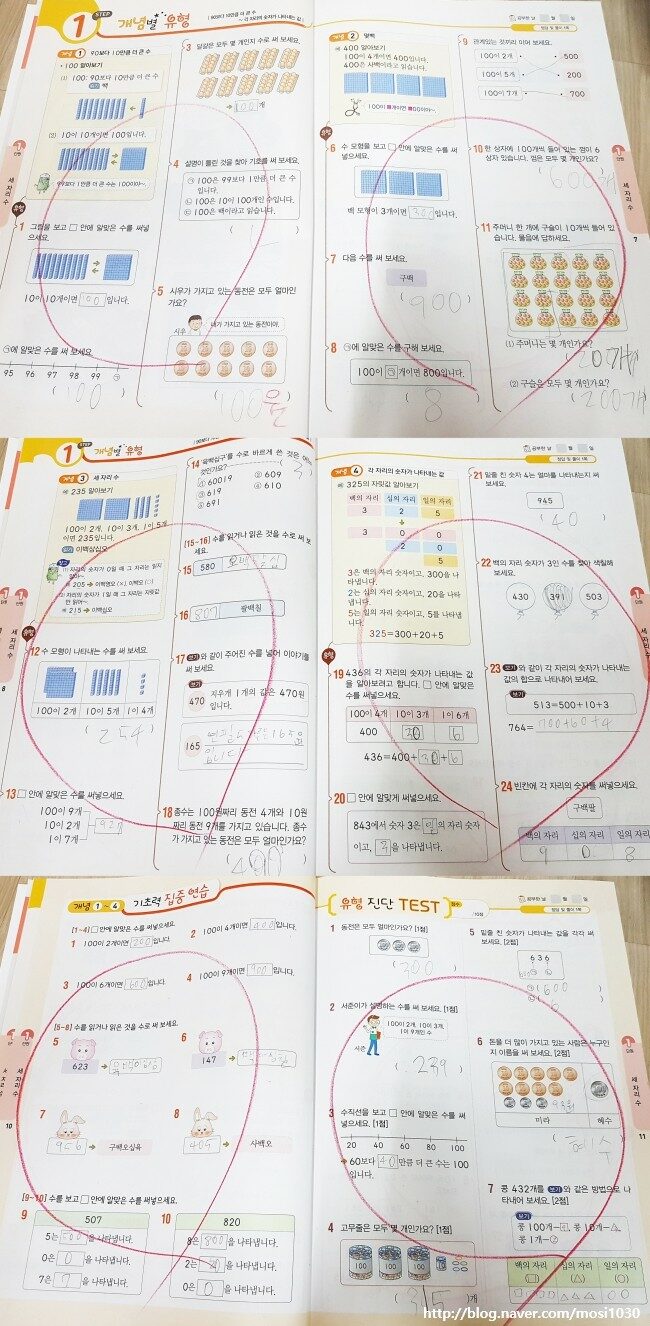 1 STEP 개념별 유형
개념 1 90보다 10만큼 더 큰 수
• 100 알아보기
(1) 100: 90보다 10만큼 더 큰 수
읽기 백
(2) 10이 10개이면 100입니다.
99보다 1만큼 더 큰 수는 100이야~.
유형
1 그림을 보고 □ 안에 알맞은 수를 써넣으세요.
10이 10개이면 100 입니다.
㉠에 알맞은 수를 써 보세요.
95 96 97 98 99 ㉠
(100)
3 달걀은 모두 몇 개인지 수로 써 보세요.
100 개
4 설명이 틀린 것을 찾아 기호를 써 보세요.
㉠ 100은 99보다 1만큼 더 큰 수입니다.
㉡ 100은 10이 100개인 수입니다.
㉢ 100은 백이라고 읽습니다.
5 시우가 가지고 있는 동전은 모두 얼마인가요?
시우
내가 가지고 있는 동전이야.
(100원)
개념 2 몇백
예 400 알아보기
100이 4개이면 400입니다.
400은 사백이라고 읽습니다.
100이 ■개이면 ■00이야~.
유형
6 수 모형을 보고 □ 안에 알맞은 수를 써넣으세요.
백 모형이 3개이면 300 입니다.
7 다음 수를 써 보세요.
구백
(900)
8 ㉠에 알맞은 수를 구해 보세요.
100이 ㉠ 개이면 800입니다.
(8)
공부한 날 월 일
정답 및 풀이 1쪽
9 관계있는 것끼리 이어 보세요.
100이 2개 • • 500
100이 5개 • • 200
100이 7개 • • 700
10 한 상자에 100개씩 들어 있는 껌이 6상자 있습니다. 껌은 모두 몇 개인가요?
(600개)
11 주머니 한 개에 구슬이 10개씩 들어 있습니다. 물음에 답하세요.
(1) 주머니는 몇 개인가요?
(20개)
(2) 구슬은 모두 몇 개인가요?
(200개)
세 자리 수
7
1 STEP 개념별 유형
개념 3 세 자리 수
예 235 알아보기
100이 2개, 10이 3개, 1이 5개이면 235입니다.
읽기 이백삼십오
참고
예 205 → 이백영오 (×), 이백오 (○)
예 215 → 이백십오
유형
12 수 모형이 나타내는 수를 써 보세요.
100이 2개 10이 5개 1이 4개
(254)
13 □ 안에 알맞은 수를 써넣으세요.
100이 9개
10이 2개 927
1이 7개
세 자리 수
8
14 '육백십구'를 수로 바르게 쓴 것은 어느 것인가요? (3)
① 60019 ② 609
③ 619 ④ 610
⑤ 691
[15~16] 수를 읽거나 읽은 것을 수로 써 보세요.
15 580 오백팔십
16 807 팔백칠
17 보기 와 같이 주어진 수를 넣어 이야기를 써 보세요.
보기
470 지우개 1개의 값은 470원입니다.
165
18 종수는 100원짜리 동전 4개와 10원짜리 동전 9개를 가지고 있습니다. 종수가 가지고 있는 동전은 모두 얼마인가요?
개념 4 각 자리의 숫자가 나타내는 값
예 325의 자릿값 알아보기
백의 자리 십의 자리 일의 자리
3 2 5
3 0 0
2 0
5
3은 백의 자리 숫자이고, 300을 나타냅니다.
2는 십의 자리 숫자이고, 20을 나타냅니다.
5는 일의 자리 숫자이고, 5를 나타냅니다.
325=300+20+5
유형
19 436의 각 자리의 숫자가 나타내는 값을 알아보려고 합니다. □ 안에 알맞은 수를 써넣으세요.
100이 4개 10이 3개 1이 6개
400 30 6
436=400+30+6
20 □ 안에 알맞게 써넣으세요.
843에서 숫자 3은 일 의 자리 숫자
이고, 3 을 나타냅니다.
공부한 날 월 일
정답 및 풀이 1쪽
21 밑줄 친 숫자 4는 얼마를 나타내는지 써 보세요.
945
(40)
22 백의 자리 숫자가 3인 수를 찾아 색칠해 보세요.
430 391 503
23 보기 와 같이 각 자리의 숫자가 나타내는 값의 합으로 나타내어 보세요.
보기
513=500+10+3
764=700+60+4
24 빈칸에 각 자리의 숫자를 써넣으세요.
구백팔
백의 자리 십의 자리 일의 자리
9 0 8
개념 1~4 기초력 집중 연습
[1~4] □ 안에 알맞은 수를 써넣으세요.
1 100이 2개이면 200 입니다.
2 100이 4개이면 400 입니다.
3 100이 6개이면 600 입니다.
4 100이 9개이면 900 입니다.
[5~8] 수를 읽거나 읽은 것을 수로 써 보세요.
5 623 →
6 147 →
7 956 → 구백오십육
8 405 → 사백오
[9~10] 수를 보고 □ 안에 알맞은 수를 써넣으세요.
9 507
5는 500 을 나타냅니다.
0은 0 을 나타냅니다.
7은 7 을 나타냅니다.
10 820
8은 800 을 나타냅니다.
2는 을 나타냅니다.
0은 0 을 나타냅니다.
10
유형 진단 TEST
점수 /10점
공부한 날 월 일
정답 및 풀이 1쪽
1 동전은 모두 얼마인가요? [1점]
(300)
2 서준이가 설명하는 수를 써 보세요. [1점]
100이 2개, 10이 3개,
1이 9개인 수
서준
(239)
3 수직선을 보고 □ 안에 알맞은 수를 써넣으세요. [1점]
20 40 60 80 100
→ 60보다 40 만큼 더 큰 수는 100입니다.
4 고무줄은 모두 몇 개인가요? [1점]
100 100 100
(315)개
5 밑줄 친 숫자가 나타내는 값을 각각 써 보세요. [2점]
636
㉠(600)
6 돈을 더 많이 가지고 있는 사람은 누구인지 이름을 써 보세요. [2점]
미라 혜수
(혜수)
7 콩 432개를 보기 와 같은 방법으로 나타내어 보세요. [2점]
보기
콩 100개-□, 콩 10개-△,
콩 1개-○
백의 자리 십의 자리 일의 자리
(□) (△) (○)
□□□□ △△△ ○○
세 자리 수
11
http://blog.naver.com/mosi1030